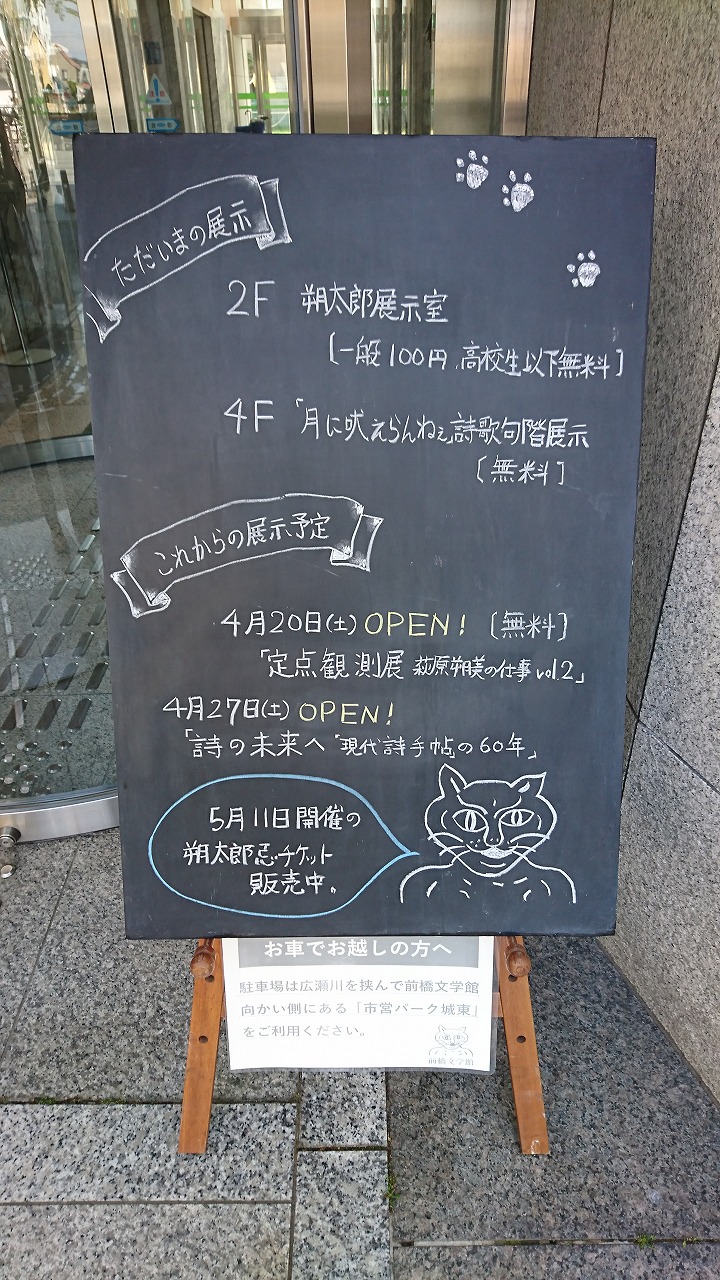 ただいまの展示
2F 朔太郎展示室
[一般100円、高校生以下無料]
4F 「月に吠えらんねえ」詩歌句階展示
[無料]
これからの展示予定
4月20日(土) OPEN! [無料]
「定点観測展 萩原朔美の仕事 vol.2」
4月27日(土) OPEN!
「詩の未来へ「現代詩手帖」の60年」
5月11日開催の
朔太郎忌・チケット
販売中。
お車でお越しの方へ
駐車場は広瀬川を挟んで前橋文学館
向かい側にある「市営パーク城東」
をご利用ください。
前橋文学館